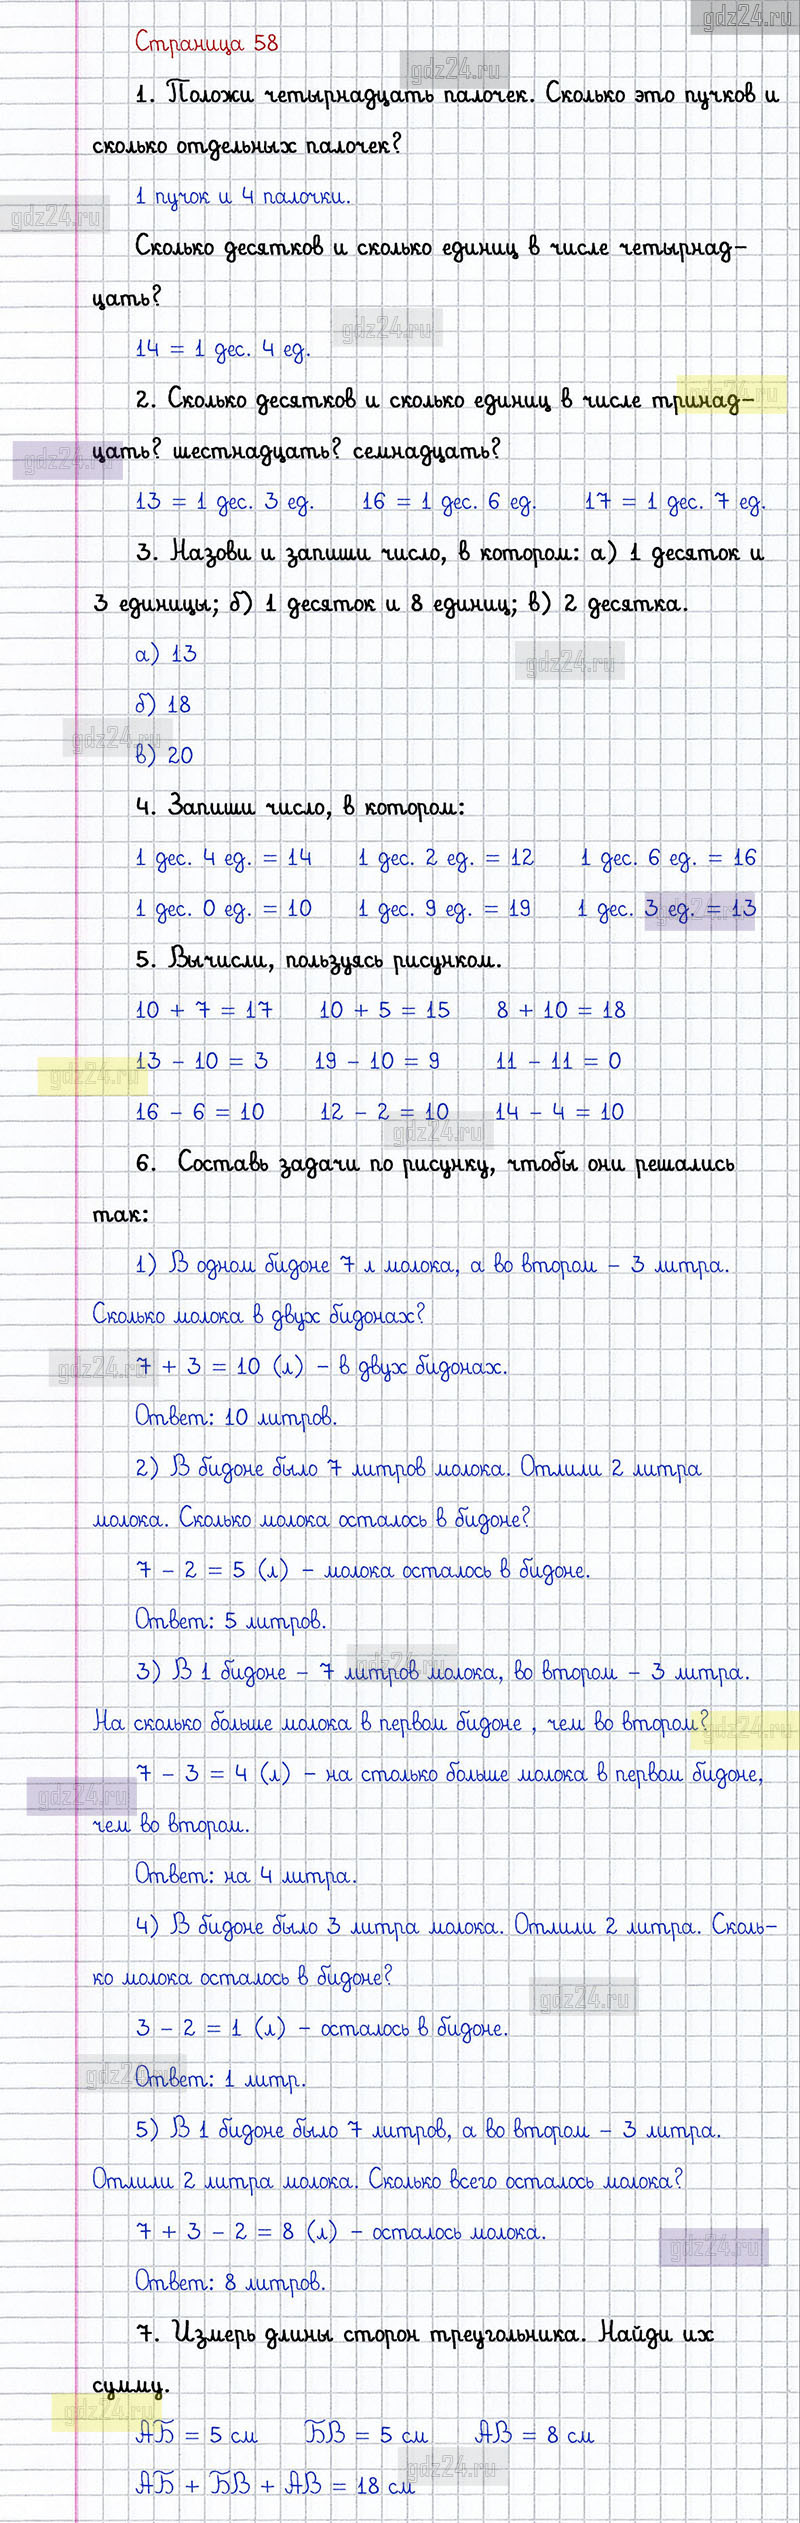 gdz24.ru
Страница 58
gdz24.ru
1. Положи четырнадцать палочек. Сколько это пучков и
сколько отдельных палочек?
1 пучок и 4 палочки.
gdz24.ru
Сколько десятков и сколько единиц в числе четырнад-
цать?
gdz24.ru
14 = 1 дес. 4 ед.
gdz24.ru
2. Сколько десятков и сколько единиц в числе тринад-
цать? шестнадцать? семнадцать?
gdz24.ru
13 = 1 дес. 3 ед. 16 = 1 дес. 6 ед. 17 = 1 дес. 7 ед.
3. Назови и запиши число, в котором: а) 1 десяток и
3 единицы; б) 1 десяток и 8 единиц; в) 2 десятка.
а) 13
gdz24.ru
б) 18
gdz24.ru
в) 20
4. Запиши число, в котором:
1 дес. 4 ед. = 14 1 дес. 2 ед. = 12 1 дес. 6 ед. = 16
1 дес. 0 ед. = 10 1 дес. 9 ед. = 19 1 дес. 3 ед. = 13
gdz24.ru
5. Вычисли, пользуясь рисунком.
10 + 7 = 17 10 + 5 = 15 8 + 10 = 18
13 - 10 = 3 19 - 10 = 9 11 - 11 = 0
gdz24.ru
16 - 6 = 10 12 - 2 = 10 14 - 4 = 10
gdz24.ru
6. Составь задачи по рисунку, чтобы они решались
так:
1) В одном бидоне 7 л молока, а во втором - 3 литра.
Сколько молока в двух бидонах?
7 + 3 = 10 (л) - в двух бидонах.
gdz24.ru
Ответ: 10 литров.
2) В бидоне было 7 литров молока. Отлили 2 литра
молока. Сколько молока осталось в бидоне?
7 - 2 = 5 (л) - молока осталось в бидоне.
Ответ: 5 литров.
gdz24.ru
3) В 1 бидоне - 7 литров молока, во втором - 3 литра.
На сколько больше молока в первом бидоне , чем во втором?
gdz24.ru
7 - 3 = 4 (л) - на столько больше молока в первом бидоне,
gdz24.ru
чем во втором.
Ответ: на 4 литра.
4) В бидоне было 3 литра молока. Отлили 2 литра. Сколь-
ко молока осталось в бидоне?
gdz24.ru
3 - 2 = 1 (л) - осталось в бидоне.
gdz24.ru
Ответ: 1 литр.
5) В 1 бидоне было 7 литров, а во втором - 3 литра.
Отлили 2 литра молока. Сколько всего осталось молока?
7 + 3 - 2 = 8 (л) - осталось молока.
gdz24.ru
Ответ: 8 литров.
7. Измерь длины сторон треугольника. Найди их
сумму.
gdz24.ru
АБ = 5 см БВ = 5 см АВ = 8 см
gdz24.ru
АБ + БВ + АВ = 18 см